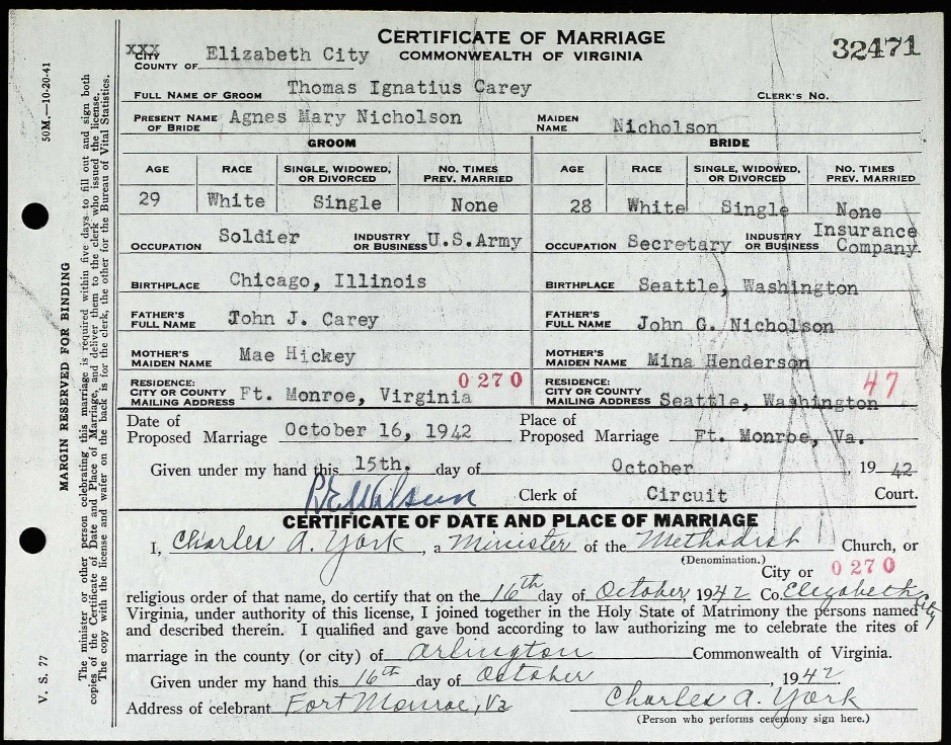 CERTIFICATE OF MARRIAGE
COMMONWEALTH OF VIRGINIA
32471
XXX
CITY
COUNTY OF Elizabeth City
FULL NAME OF GROOM Thomas Ignatius Carey CLERK'S NO.
PRESENT NAME OF BRIDE Agnes Mary Nicholson MAIDEN NAME Nicholson
GROOM BRIDE
AGE RACE SINGLE, WIDOWED, OR DIVORCED NO. TIMES PREV. MARRIED AGE RACE SINGLE, WIDOWED, OR DIVORCED NO. TIMES PREV. MARRIED
29 White Single None 28 White Single None
OCCUPATION Soldier INDUSTRY OR BUSINESS U.S.Army OCCUPATION Secretary INDUSTRY OR BUSINESS Insurance Company.
BIRTHPLACE Chicago, Illinois BIRTHPLACE Seattle, Washington
FATHER'S FULL NAME John J. Carey FATHER'S FULL NAME John G. Nicholson
MOTHER'S MAIDEN NAME Mae Hickey MOTHER'S MAIDEN NAME Mina Henderson
RESIDENCE: CITY OR COUNTY MAILING ADDRESS Ft. Monroe, Virginia 0270 RESIDENCE: CITY OR COUNTY MAILING ADDRESS Seattle, Washington 47
Date of Proposed Marriage October 16, 1942 Place of Proposed Marriage Ft. Monroe, Va.
Given under my hand this 15th. day of October, 1942
Clerk of Circuit Court.
CERTIFICATE OF DATE AND PLACE OF MARRIAGE
I, Charles A. York, a Minister of the Methodist Church, or
(Denomination.)
City or 0270
religious order of that name, do certify that on the 16th day of October, 1942 Co. Elizabeth City
Virginia, under authority of this license, I joined together in the Holy State of Matrimony the persons named
and described therein. I qualified and gave bond according to law authorizing me to celebrate the rites of
marriage in the county (or city) of Arlington Commonwealth of Virginia.
Given under my hand this 16th day of October, 1942
Address of celebrant Fort Monroe, Va Charles A. York
(Person who performs ceremony sign here.)
V. S. 77 50M.—10-20-41
MARGIN RESERVED FOR BINDING
The minister or other person celebrating this marriage is required within five days to fill out and sign both
copies of the Certificate of Date and Place of Marriage, and deliver them to the clerk who issued the license.
The copy with the license and wafer on the back is for the clerk, the other for the Bureau of Vital Statistics.